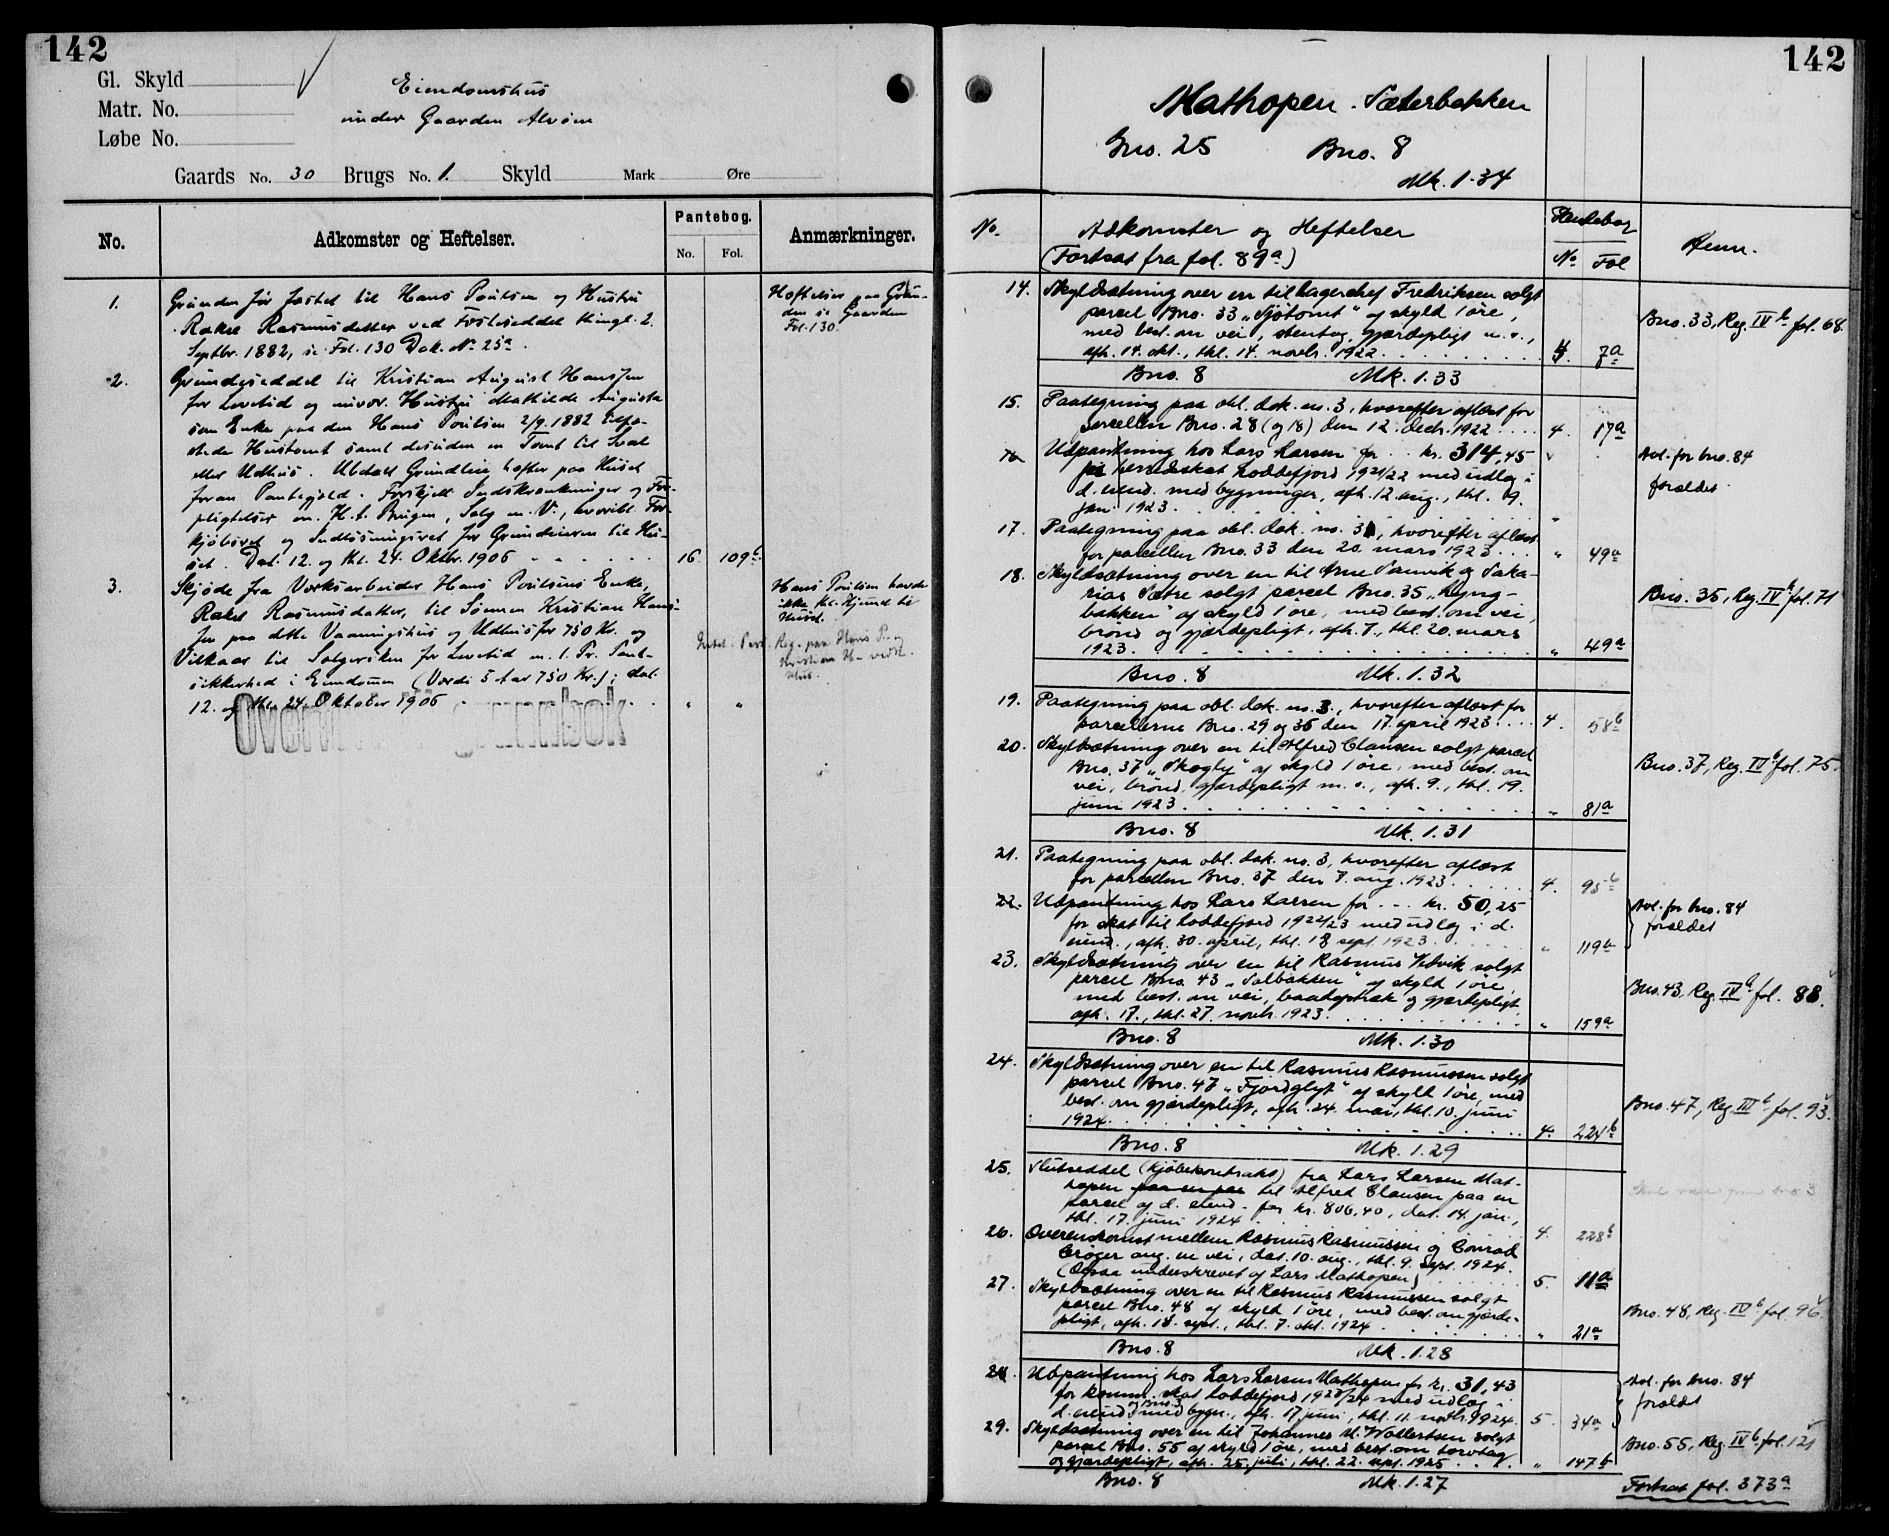 142
Gl. Skyld
Matr. No.
Løbe No.
Eiendomshus
under Gaarden Alvøen
Gaards No. 30 Brugs No. 1. Skyld Mark Øre
No. Adkomster og Heftelser. Pantebog. Anmærkninger.
No. Fol.
1. Grunden før fæstet til Hans Poulsen og Hustru
Rakel Rasmusdatter ved Festeseddel thingl. 2.
Septbr. 1882, se Fol. 130 Dok. No 25a.
Heftelser paa Grun-
den se Gaarden
Fol. 130.
2. Grundeseddel til Kristian August Hansen
for Levetid og nuvær. Hustru Mathilde Augusta
som Enke paa den Hans Poulsen 2/9 1882
Hustomt samt desuden en Tomt til Sval
eller Udhus. Ubetalt Grundleie hefter paa Huset
foran Pantegjæld. Forskjell. Indskrænkninger og For-
pligtelser m. H. t. Brugen, Salg m. V., hvorihl. For-
kjøbsret og Indløsningsret for Grundeieren til Hu-
set. Dat. 12. og thl. 24. Oktbr. 1906 16 109b
3. Skjøde fra Værksarbeider Hans Poulsens Enke,
Rakel Rasmusdatter, til Sønnen Kristian Han-
sen paa dette Vaaningshus og Udhus for 750 Kr. og
Vilkaar til Sælgersken for Levetid m. 1. Pr. Pant-
sikkerhed i Eiendommen (Værdi 5 Aar 750 Kr.); dat.
12. og thl. 24. Oktober 1906 " "
Hans Poulsen havde
ikke thl. Hjemmel til
Huset.
Reg. paa Hans P. og
Kristian H. vedk.
Hus.
grunnbok
142
Mathopen Sæterbakken
Gno. 25 Bno. 8
Mk. 1.34
No. Adkomster og Heftelser Pantebog Anm.
(Fortsat fra fol. 89a) No Fol
14. Skyldsætning over en til Lagerchef Fredriksen solgt
parcel Bno. 33 „Sjøtomt" af skyld 1 øre,
med best. om vei, stentag, gjærdepligt m. v.,
afh. 14. okt., thl. 14. novbr. 1922 4. 7a
Bno. 33, Reg. IVb fol. 68.
Bno. 8 Mk. 1.33
15. Paategning paa obl. dok. no. 3, hvorefter aflæst for
parcellen Bno. 28 (og 18) den 12. decbr. 1922 4. 17a
16. Udpantning hos Lars Larsen for kr. 314,45
herredskat Loddefjord 1921/22 med udlæg i
d. eiend. med bygninger, afh. 12. aug., thl. 9.
jan. 1923 "
Avl. for bno. 84
foreldet.
17. Paategning paa obl. dok. no. 3, hvorefter aflæst
for parcellen Bno. 33 den 20. mars 1923 " 49a
18. Skyldsætning over en til Arne Sanvik og Saka-
rias Sætre solgt parcel Bno. 35 „Lyng-
bakken" af skyld 1 øre, med best. om vei,
brønd og gjærdepligt, afh. 7., thl. 20. mars
1923. " 49a
Bno. 35, Reg. IVb fol. 71
Bno. 8 Mk. 1.32
19. Paategning paa obl. dok. no. 3, hvorefter aflæst for
parcellerne Bno. 29 og 35 den 17. april 1923 4. 58b
20. Skyldsætning over en til Alfred Clausen solgt parcel
Bno. 37 „Skogly" af skyld 1 øre, med best. om
vei, brønd, gjærdepligt m. v., afh. 9., thl. 19.
juni 1923 " 81a
Bno. 37, Reg. IVb fol. 75.
Bno. 8 Mk. 1.31
21. Paategning paa obl. dok. no. 3, hvorefter aflæst
for parcellen Bno. 37 den 7. aug. 1923 4. 95b
22. Udpantning hos Lars Larsen for kr. 50,25
for skat til Loddefjord 1922/23 med udlæg i d.
eiend., afh. 30. april, thl. 18 sept. 1923 " 119a
Avl. for bno. 84
foreldet
23. Skyldsætning over en til Rasmus Vedvik solgt
parcel Bno. 43 „Solbakken" af skyld 1 øre,
med best. om vei, baadoptræk og gjærdepligt,
afh. 17., thl. 27. novbr. 1923 " 159a
Bno. 43, Reg. IVb fol. 88.
Bno. 8 Mk. 1.30
24. Skyldsætning over en til Rasmus Rasmussen solgt
parcel Bno. 47 „Fjordglyt" af skyld 1 øre, med
best. om gjærdepligt, afh. 24. mai, thl. 10. juni
1924 4. 224b
Bno. 47, Reg. IIIb fol. 93.
Bno. 8 Mk. 1.29
25. Slutseddel (kjøbekontrakt) fra Lars Larsen Mat-
hopen paa en par til Alfred Clausen paa en
parcel af d. eiend. for kr. 806,40, dat. 14. jan.,
thl. 17. juni 1924 4. 228b
26. Overenskomst mellem Rasmus Rasmussen og Conrad
Crøger ang. en vei, dat. 10. aug., thl. 9. sept. 1924.
(Ogsaa underskrevet af Lars Mathopen) 5. 11a
27. Skyldsætning over en til Rasmus Rasmussen solgt
parcel Bno. 48 af skyld 1 øre, med best. om gjærde-
pligt, afh. 18. sept., thl. 7. okt. 1924 " 21a
Bno. 48, Reg. IVb fol. 96.
Bno. 8 Mk. 1.28
28. Udpantning hos Lars Larsen Mathopen for kr. 31,43
for komm. skat Loddefjord 1923/24 med udlæg i
d. eiend. og Bno. 3 med bygn., afh. 17 juni, thl. 11. novbr. 1924. 5. 34a
Avl. for bno. 84
foreldet
29. Skyldsætning over en til Johannes M. Wollertsen solgt
parcel Bno. 55 af skyld 1 øre, med best. om torvtag
og gjærdepligt, afh. 25. juli, thl. 22. sept. 1925 " 147b
Bno. 55, Reg. IVb fol. 121
Bno. 8 Mk. 1.27
Fortsat fol. 373a